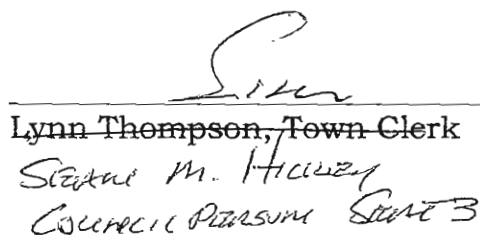 Lynn Thompson, Town Clerk
M. Hickey
Council Person Seat 3